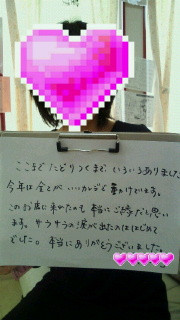 ここまでたどりつくまで、いろいろありました
今年は全てが いいカンジで動いています。
この場に来れたのも 本当にご縁だと思い
ます。サラサラの涙が出たのははじめて
でした。本当にありがとうございました。